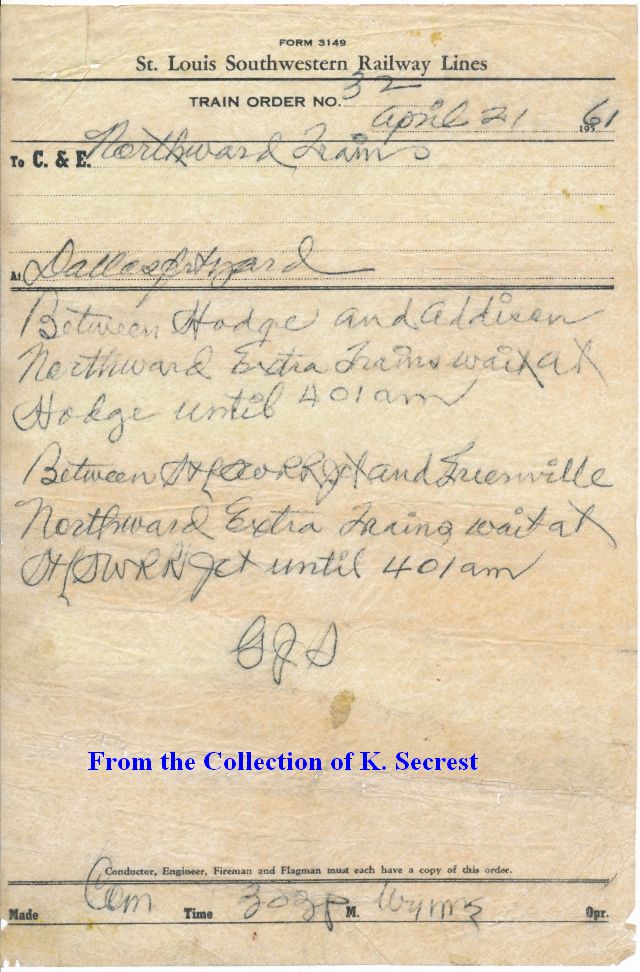 FORM 3149
St. Louis Southwestern Railway Lines
TRAIN ORDER NO. 32
April 21 1961
To C. & E. Northward Trains
At Dallas frt yard
Between Hodge and Addison
Northward Extra Trains wait at
Hodge until 401am
Between StLSWRR Jct and Greenville
Northward Extra Trains wait at
StLSWRR Jct until 401am
GJS
From the Collection of K. Secrest
Conductor, Engineer, Fireman and Flagman must each have a copy of this order.
Made Com Time 303p M. Opr.